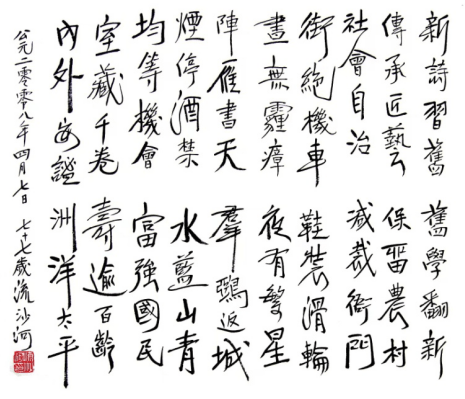 新詩習舊 舊學翻新
傳承匠藝 保留農村
社會自治 減裁衙門
街絕機車 鞋裝滑輪
晝無霾瘴 夜有繁星
陣雁書天 羣鷗返城
煙停酒禁 水藍山青
均等機會 富強國民
室藏千卷 壽逾百齡
內外安謐 洲洋太平
公元二零零八年四月七日 七十七歲流沙河